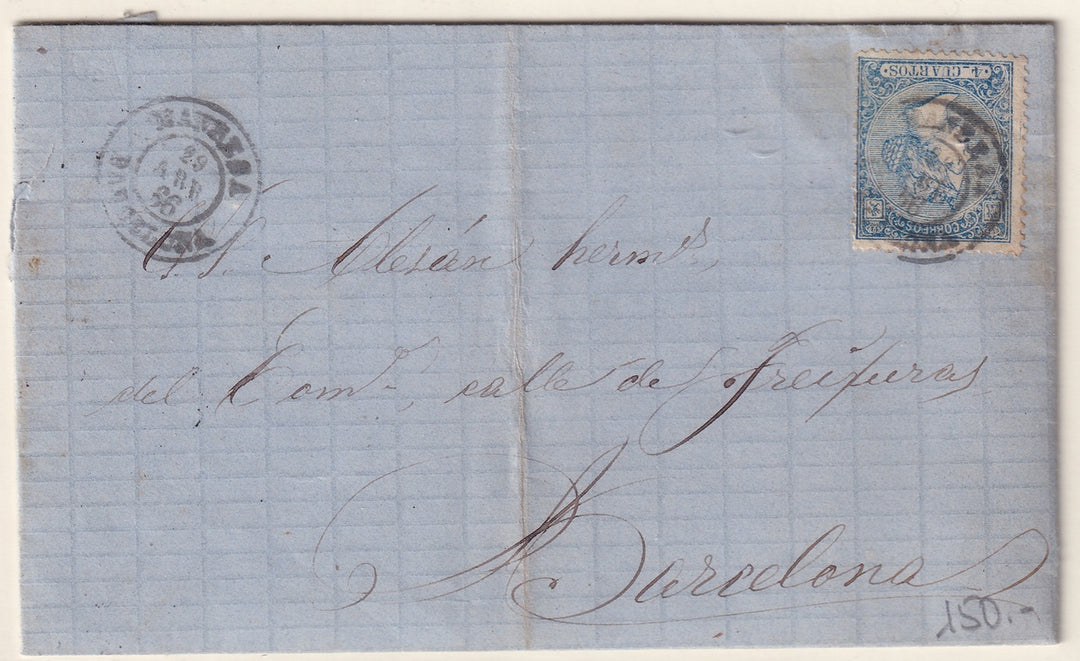 4 CUARTOS
CORREOS
MANRESA
29
ABR
66
BARCELONA
S.S. Alesán herm.s
del Com.o, calle de Freixuras
Barcelona
150.-